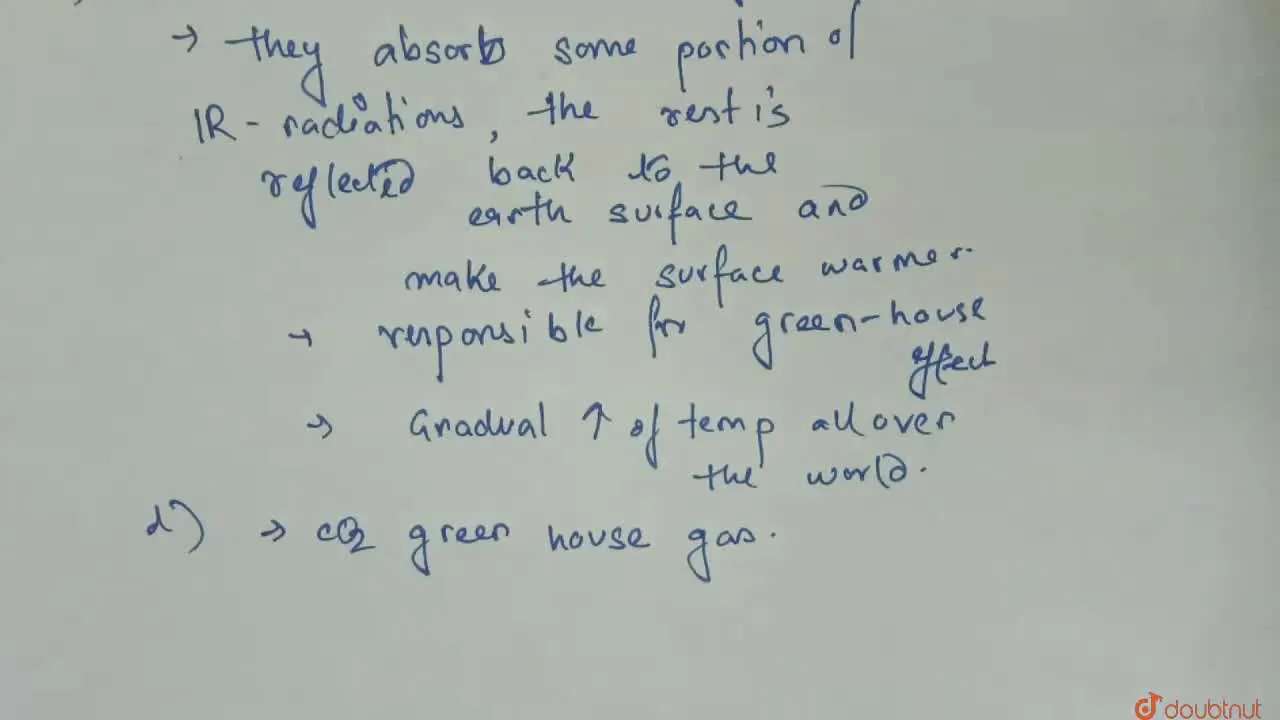 → they absorb some portion of
IR-radiations, the rest is
reflected back to the
earth surface and
make the surface warmer.
→ responsible for green-house
effect
→ Gradual ↑ of temp all over
the world.
d) → CO2 green house gas.
doubtnut